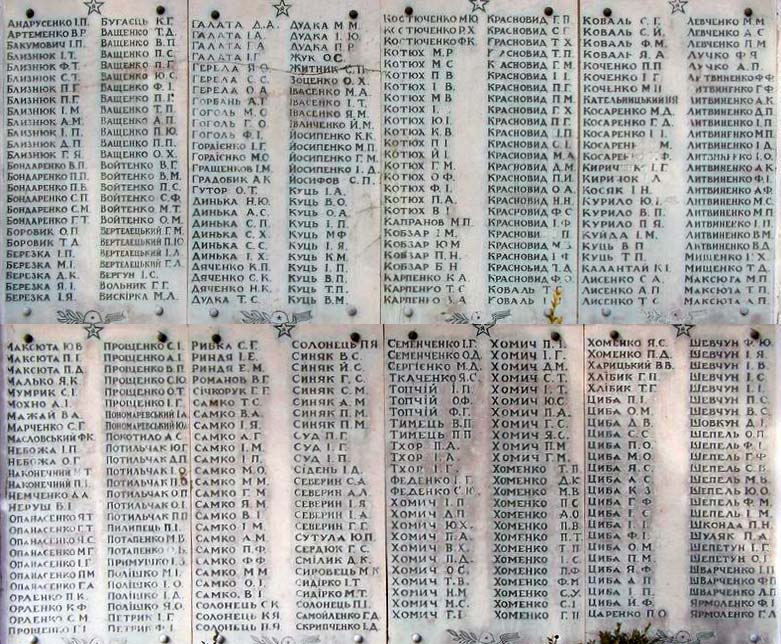 АНДРУСЕНКО І.П.
АРТЕМЕНКО В.Р.
БАКУМОВИЧ І.П.
БЛИЗНЮК І.Т.
БЛИЗНЮК Ф.Т.
БЛИЗНЮК С.Т.
БЛИЗНЮК П.Г.
БЛИЗНЮК І.М.
БЛИЗНЮК А.М.
БЛИЗНЮК І.П.
БЛИЗНЮК Д.П.
БЛИЗНЮК Г.Я.
БОНДАРЕНКО В.П.
БОНДАРЕНКО П.П.
БОНДАРЕНКО С.П.
БОНДАРЕНКО С.М.
БОНДАРЕНКО Г.Т.
БОРОВИК О.П.
БОРОВИК Т.Д.
БЕРЕЗКА І.П.
БЕРЕЗКА М.І.
БЕРЕЗКА Д.К.
БЕРЕЗКА І.Я.
БУГАЄЦЬ К.Г.
ВАЩЕНКО Т.Д.
ВАЩЕНКО В.П.
ВАЩЕНКО П.Г.
ВАЩЕНКО Ю.С.
ВАЩЕНКО Ф.І.
ВАЩЕНКО П.І.
ВАЩЕНКО Т.П.
ВАЩЕНКО А.П.
ВАЩЕНКО П.Ю.
ВАЩЕНКО П.С.
ВАЩЕНКО О.Х.
ВОЙТЕНКО В.Г.
ВОЙТЕНКО В.М.
ВОЙТЕНКО П.С.
ВОЙТЕНКО С.Ф.
ВОЙТЕНКО М.Т.
ВОЙТЕНКО О.М.
ВЕРТЕЛЕЦЬКИЙ Г.М.
ВЕРТЕЛЕЦЬКИЙ П.Ю.
ВЕРТЕЛЕЦЬКИЙ І.Л.
ВЕРТЕЛЕЦЬКИЙ Г.Л.
ВЕРГУН І.С.
ВОЛЬНИК Г.Г.
ВИСКІРКА М.Л.
ГАЛАТА Д.А.
ГАЛАТА І.А.
ГАЛАТА Г.А.
ГАЛАТА І.Г.
ГЕРЕЛА Я.О.
ГЕРЕЛА С.С.
ГЕРЕЛА О.А.
ГОРБАНЬ А.Г.
ГОГОЛЬ М.С.
ГОГОЛЬ Г.О.
ГОГОЛЬ Ф.І.
ГОРДІЄНКО І.Г.
ГОРДІЄНКО М.О.
ГРАЩЕНКОВ І.М.
ГРАДОБИК А.К.
ГУТОР О.Т.
ДИНЬКА Н.Ю.
ДИНЬКА А.С.
ДИНЬКА С.П.
ДИНЬКА С.Х.
ДИНЬКА С.С.
ДЯЧЕНКО К.П.
ДЯЧЕНКО С.К.
ДЯЧЕНКО Н.К.
ДУДКА Т.С.
ДУДКА М.М.
ДУДКА І.Ю.
ДУДКА П.Р.
ЖУК О.С.
ЖИТНИК С.П.
ЗОЩЕНКО О.Х.
ІВАСЕНКО М.А.
ІВАСЕНКО І.Т.
ІВАСЕНКО Я.М.
ІВАНЧЕНКО Й.М.
ЙОСИПЕНКО К.К.
ЙОСИПЕНКО М.П.
ЙОСИПЕНКО Г.М.
ЙОСИПЕНКО І.Д.
ЙОСИФОВ С.П.
КУЦЬ І.А.
КУЦЬ В.О.
КУЦЬ О.А.
КУЦЬ І.П.
КУЦЬ М.Ф.
КУЦЬ І.Я.
КУЦЬ К.М.
КУЦЬ Т.П.
КУЦЬ В.П.
КУЦЬ І.П.
КУЦЬ В.М.
КОСТЮЧЕНКО М.Ю.
КОСТЮЧЕНКО Р.Х.
КОСТЮЧЕНКО Ф.К.
КОТЮХ М.Р.
КОТЮХ М.С.
КОТЮХ П.В.
КОТЮХ І.І.
КОТЮХ М.В.
КОТЮХ І.
КОТЮХ Ю.І.
КОТЮХ К.В.
КОТЮХ П.І.
КОТЮХ Й.І.
КОТЮХ Г.М.
КОТЮХ О.І.
КОТЮХ Ф.І.
КОТЮХ П.А.
КОТЮХ В.І.
КАПРАНОВ М.П.
КОБЗАР І.М.
КОБЗАР Ю.М.
КОБЗАР П.Н.
КОБЗАР Б.Н.
КАРПЕНКО К.А.
КАРПЕНКО Т.С.
КАРПЕНКО Х.А.
КРАСНОВИД Г.П.
КРАСНОВИД С.Г.
КРАСНОВИД Т.Х.
КРАСНОВИД Т.П.
КРАСНОВИД Г.М.
КРАСНОВИД І.І.
КРАСНОВИД П.Г.
КРАСНОВИД П.М.
КРАСНОВИД Г.М.
КРАСНОВИД П.Г.
КРАСНОВИД І.П.
КРАСНОВИД С.І.
КРАСНОВИД М.А.
КРАСНОВИД Д.М.
КРАСНОВИД П.И.
КРАСНОВИД О.А.
КРАСНОВИД Н.Н.
КРАСНОВИД Ф.С.
КРАСНОВИД І.Ф.
КРАСНОВИД П.
КРАСНОВИД М.З.
КРАСНОВИД І.Ф.
КРАСНОВИД П.Д.
КОВАЛЬ Т.Ф.
КОВАЛЬ І.
КОВАЛЬ С.Г.
КОВАЛЬ С.Й.
КОВАЛЬ Ф.М.
КОВАЛЬ Я.А.
КОЧЕНКО П.П.
КОЧЕНКО І.Г.
КОЧЕНКО М.П.
КАТЕЛЬНИЦЬКИЙ І.Я.
КОСАРЕНКО М.Д.
КОСАРЕНКО Г.Д.
КОСАРЕНКО І.І.
КОСАРЕНКО М.
КОСАРЕНКО Ф.
КИРИЧЕНКО І.Г.
КИРИЧОК А.
КОСЯК І.Н.
КУРИЛО Ю.І.
КУРИЛО В.П.
КУРИЛО П.Я.
КУЙДА І.М.
КУЦЬ В.П.
КУЦЬ Т.П.
КАЛАНТАЙ К.І.
ЛИСЕНКО С.А.
ЛИСЕНКО А.П.
ЛИСЕНКО Т.С.
ЛЕВЧЕНКО М.М.
ЛЕВЧЕНКО А.С.
ЛЕВЧЕНКО П.М.
ЛУЧКО Ф.Я.
ЛУЧКО А.П.
ЛИТВИНЕНКО Ф.Ф.
ЛИТВИНЕНКО Г.Ф.
ЛИТВИНЕНКО А.К.
ЛИТВИНЕНКО Д.К.
ЛИТВИНЕНКО І.П.
ЛИТВИНЕНКО М.П.
ЛИТВИНЕНКО Д.П.
ЛИТВИНЕНКО І.О.
ЛИТВИНЕНКО О.І.
ЛИТВИНЕНКО Ф.І.
ЛИТВИНЕНКО Д.М.
ЛИТВИНЕНКО М.П.
ЛИТВИНЕНКО П.М.
ЛИТВИНЕНКО І.М.
ЛИТВИНЕНКО В.М.
ЛИТВИНЕНКО В.Д.
МИЩЕНКО Г.Х.
МИЩЕНКО Т.Д.
МАКСЮТА М.П.
МАКСЮТА Т.П.
МАКСЮТА А.П.
МАКСЮТА Ю.В.
МАКСЮТА П.Г.
МАКСЮТА П.Д.
МАЛЬКО Я.К.
МУМРИК С.І.
МОХНО А.І.
МАЖАЙ В.А.
МАРЧЕНКО С.Г.
МАСЛОВСЬКИЙ Ф.К.
НЕБОЖА І.П.
НЕБОЖА О.Г.
НАКОНЕЧНИЙ М.Т.
НАКОНЕЧНИЙ П.І.
НЕМЧЕНКО А.А.
НЕРУШ В.І.
ОПАНАСЕНКО Я.Т.
ОПАНАСЕНКО Є.Т.
ОПАНАСЕНКО Я.С.
ОПАНАСЕНКО М.Г.
ОПАНАСЕНКО І.Г.
ОПАНАСЕНКО П.М.
ОПАНАСЕНКО Г.А.
ОРЛЕНКО П.К.
ОРЛЕНКО К.Ф.
ПРОЩЕНКО Г.І.
ПРОЩЕНКО С.І.
ПРОЩЕНКО А.І.
ПРОЩЕНКО В.П.
ПРОЩЕНКО С.Ю.
ПРОЩЕНКО О.Т.
ПРОЩЕНКО І.Г.
ПОНОМАРЕВСЬКИЙ І.А.
ПОНОМАРЕВСЬКИЙ Ю.М.
ПОКОТИЛО А.С.
ПОТИЛЬЧАК Ю.Г.
ПОТИЛЬЧАК Д.П.
ПОТИЛЬЧАК І.О.
ПОТИЛЬЧАК П.М.
ПОТИЛЬЧАК О.П.
ПОТИЛЬЧАК О.І.
ПОТИЛЬЧАК Г.П.
ПИЛИПЕЦЬ П.І.
ПОТАПЕНКО М.В.
ПОТАПЕНКО О.В.
ПРИМУШКО І.З.
ПОЛІШКО М.І.
ПОЛІШКО Г.О.
ПОЛІШКО Я.О.
ПЕТРИК Г.Г.
ПЕТРИК Ф.Г.
РИБКА С.Г.
РИНДЯ І.Е.
РИНДЯ Е.М.
РОМАНОВ В.Г.
СІЧКОРУК Г.Г.
САМКО Т.С.
САМКО В.А.
САМКО І.Я.
САМКО А.Г.
САМКО І.М.
САМКО І.С.
САМКО М.О.
САМКО М.М.
САМКО Г.М.
САМКО Я.М.
САМКО В.І.
САМКО І.М.
САМКО А.М.
САМКО П.Ф.
САМКО Ф.Ф.
САМКО М.М.
САМКО О.І.
САМКО В.І.
СОЛОНЕЦЬ С.К.
СОЛОНЕЦЬ К.Я.
СОЛОНЕЦЬ П.Я.
СОЛОНЕЦЬ П.Я.
СИНЯК В.С.
СИНЯК Й.Г.
СИНЯК Г.С.
СИНЯК С.М.
СИНЯК А.М.
СИНЯК П.М.
СИНЯК П.М.
СУД П.Г.
СУД І.Г.
СУД І.П.
СІДЕНЬ І.Д.
СЕВЕРИН С.А.
СЕВЕРИН А.Л.
СЕВЕРИН І.Я.
СЕВЕРИН І.А.
СЕВЕРИН Г.Г.
СУТУЛА Ю.П.
СЕРДЮК Г.С.
СМІЛИК Д.К.
СИРОВЕЦЬ М.К.
СИДІРКО І.Т.
СИДІРКО М.Т.
СОЛОНЕЦЬ П.І.
САМОЙЛЕНКО Г.Д.
СКРИПЧЕНКО І.Д.
СЕМЕНЧЕНКО І.Г.
СЕМЕНЧЕНКО О.Д.
СЕРГІЄНКО М.Д.
ТКАЧЕНКО Я.С.
ТОПЧІЙ І.П.
ТОПЧІЙ О.Ф.
ТОПЧІЙ Ф.Г.
ТИМЕЦЬ В.П.
ТИМЕЦЬ П.П.
ТХОР П.А.
ТХОР Д.А.
ТХОР І.Г.
ФЕДЕНКО Г.І.
ФЕДЕНКО С.Ю.
ХОМИЧ І.П.
ХОМИЧ Д.П.
ХОМИЧ Ю.Х.
ХОМИЧ А.К.
ХОМИЧ П.А.
ХОМИЧ П.Д.
ХОМИЧ О.С.
ХОМИЧ Т.В.
ХОМИЧ Н.М.
ХОМИЧ М.С.
ХОМИЧ Г.І.
ХОМИЧ П.Т.
ХОМИЧ І.Г.
ХОМИЧ Д.М.
ХОМИЧ С.Т.
ХОМИЧ К.Т.
ХОМИЧ Ю.С.
ХОМИЧ П.А.
ХОМИЧ Г.С.
ХОМИЧ Я.С.
ХОМИЧ П.М.
ХОМИЧ Г.М.
ХОМЕНКО Т.П.
ХОМЕНКО Д.К.
ХОМЕНКО М.В.
ХОМЕНКО П.С.
ХОМЕНКО А.О.
ХОМЕНКО П.В.
ХОМЕНКО П.Т.
ХОМЕНКО В.Х.
ХОМЕНКО Т.П.
ХОМЕНКО О.І.
ХОМЕНКО П.Ф.
ХОМЕНКО Ф.М.
ХОМЕНКО С.У.
ХОМЕНКО С.І.
ХОМЕНКО П.П.
ХОМЕНКО Я.С.
ХОМЕНКО П.Д.
ХАРИЦЬКИЙ В.В.
ХЛІБИК Г.П.
ХЛІБИК Т.Г.
ЦИБА П.І.
ЦИБА О.М.
ЦИБА Д.В.
ЦИБА С.С.
ЦИБА П.О.
ЦИБА М.О.
ЦИБА Я.С.
ЦИБА А.С.
ЦИБА К.З.
ЦИБА Г.Ф.
ЦИБА С.Ф.
ЦИБА П.Т.
ЦИБА Ф.І.
ЦИБА О.П.
ЦИБА П.М.
ЦИБА С.І.
ЦИБА А.П.
ЦИБА Й.Ф.
ЦАРЕНКО П.О.
ШЕВЧУН Ф.Ю.
ШЕВЧУН І.Я.
ШЕВЧУН І.І.
ШЕВЧУН Є.С.
ШЕВЧУН І.В.
ШЕВЧУН П.С.
ШЕВЧУН В.С.
ШОВКУН Д.І.
ШЕПЕЛЬ О.П.
ШЕПЕЛЬ Г.І.
ШЕПЕЛЬ Є.Г.
ШЕПЕЛЬ С.В.
ШЕПЕЛЬ М.В.
ШЕПЕЛЬ Ю.П.
ШЕПЕЛЬ Ф.М.
ШЕПЕЛЬ Г.М.
ШКОНДА П.Н.
ШУДЯК П.А.
ШЕПЕТУН І.Г.
ШЕПЕТУН О.Г.
ШВАРЧЕНКО І.П.
ШВАРЧЕНКО Ф.П.
ШВАРЧЕНКО Л.П.
ЯРМОЛЕНКО Ф.І.
ЯРМОЛЕНКО Г.Л.